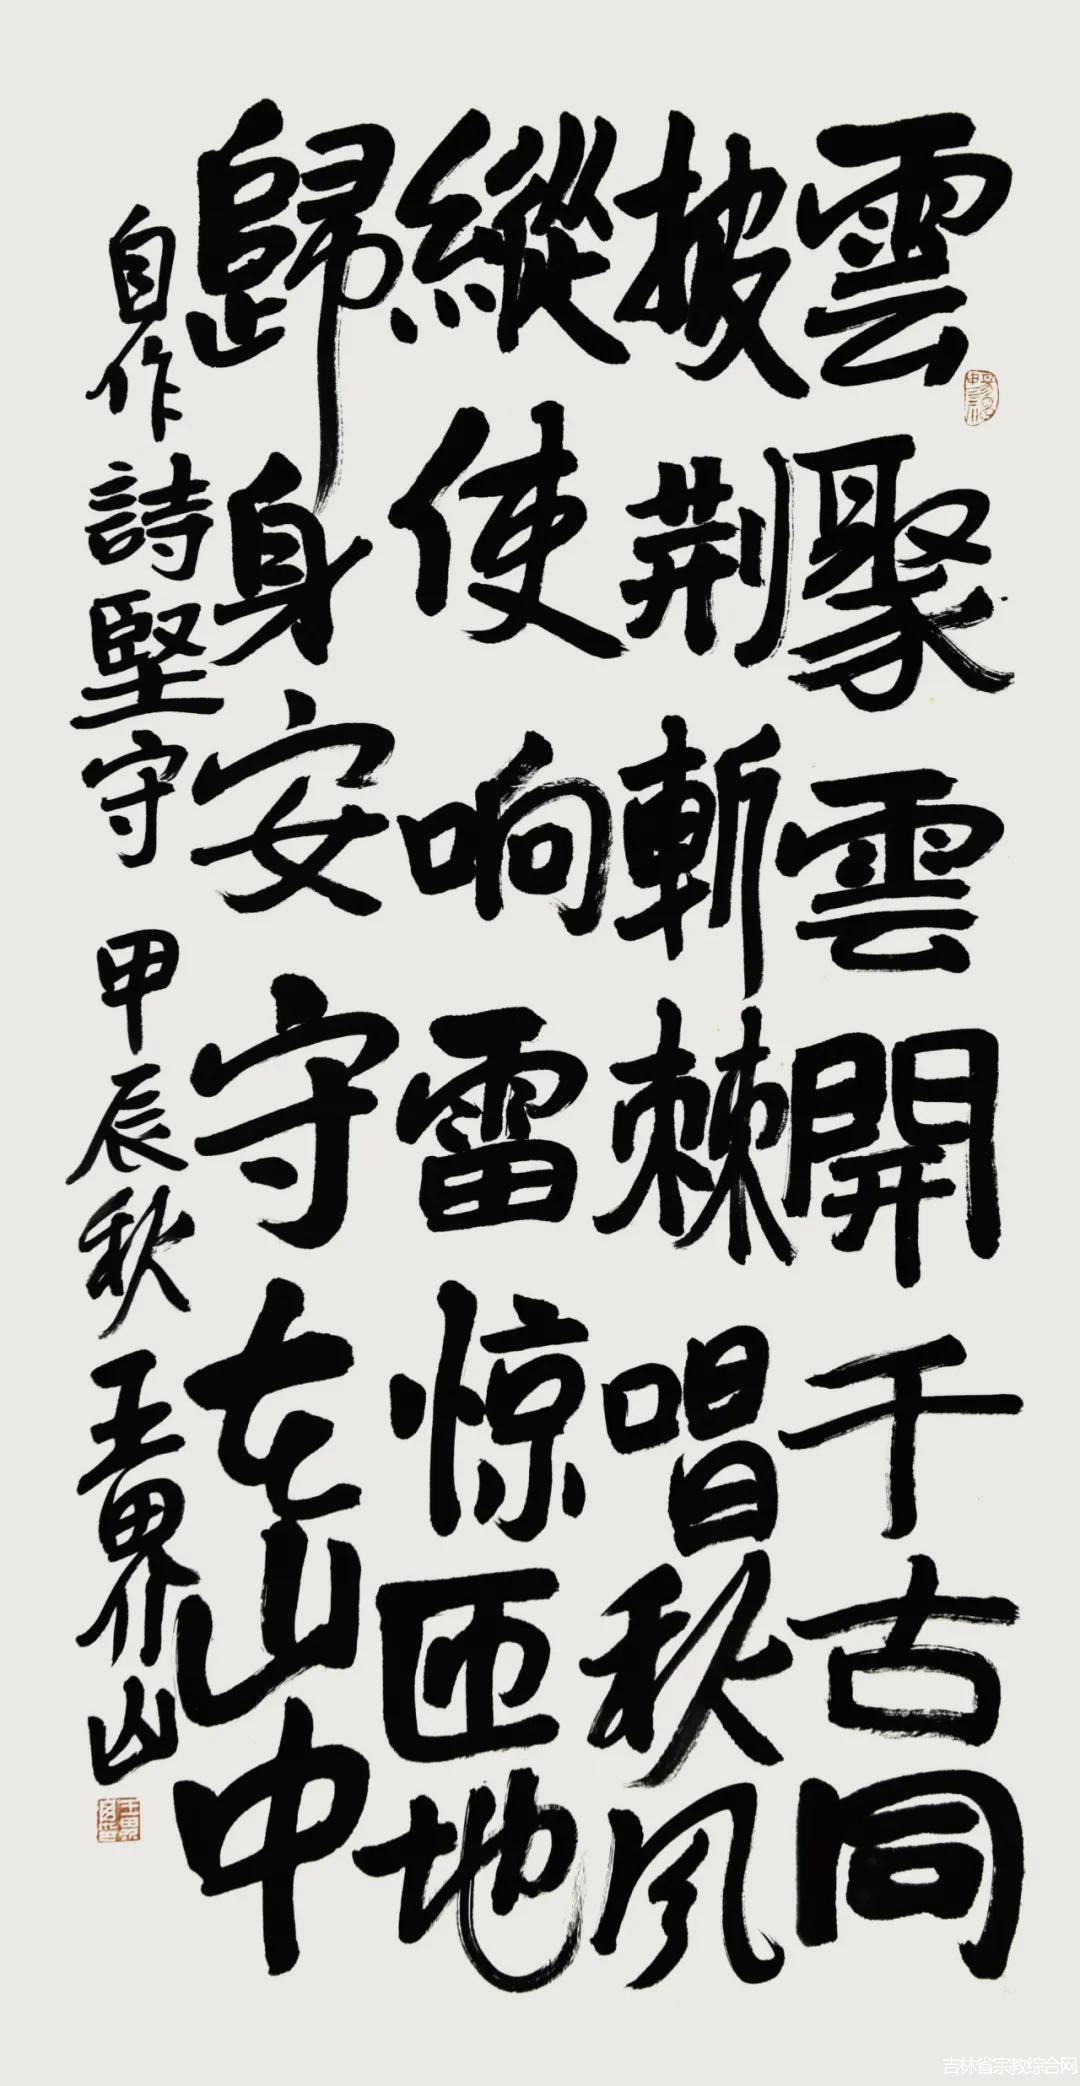 雲聚雲開千古同
披荆斬棘唱秋風
縱使响雷惊匝地
歸身安守在山中
自作詩堅守 甲辰秋 王界山
吉林省宗教综合网